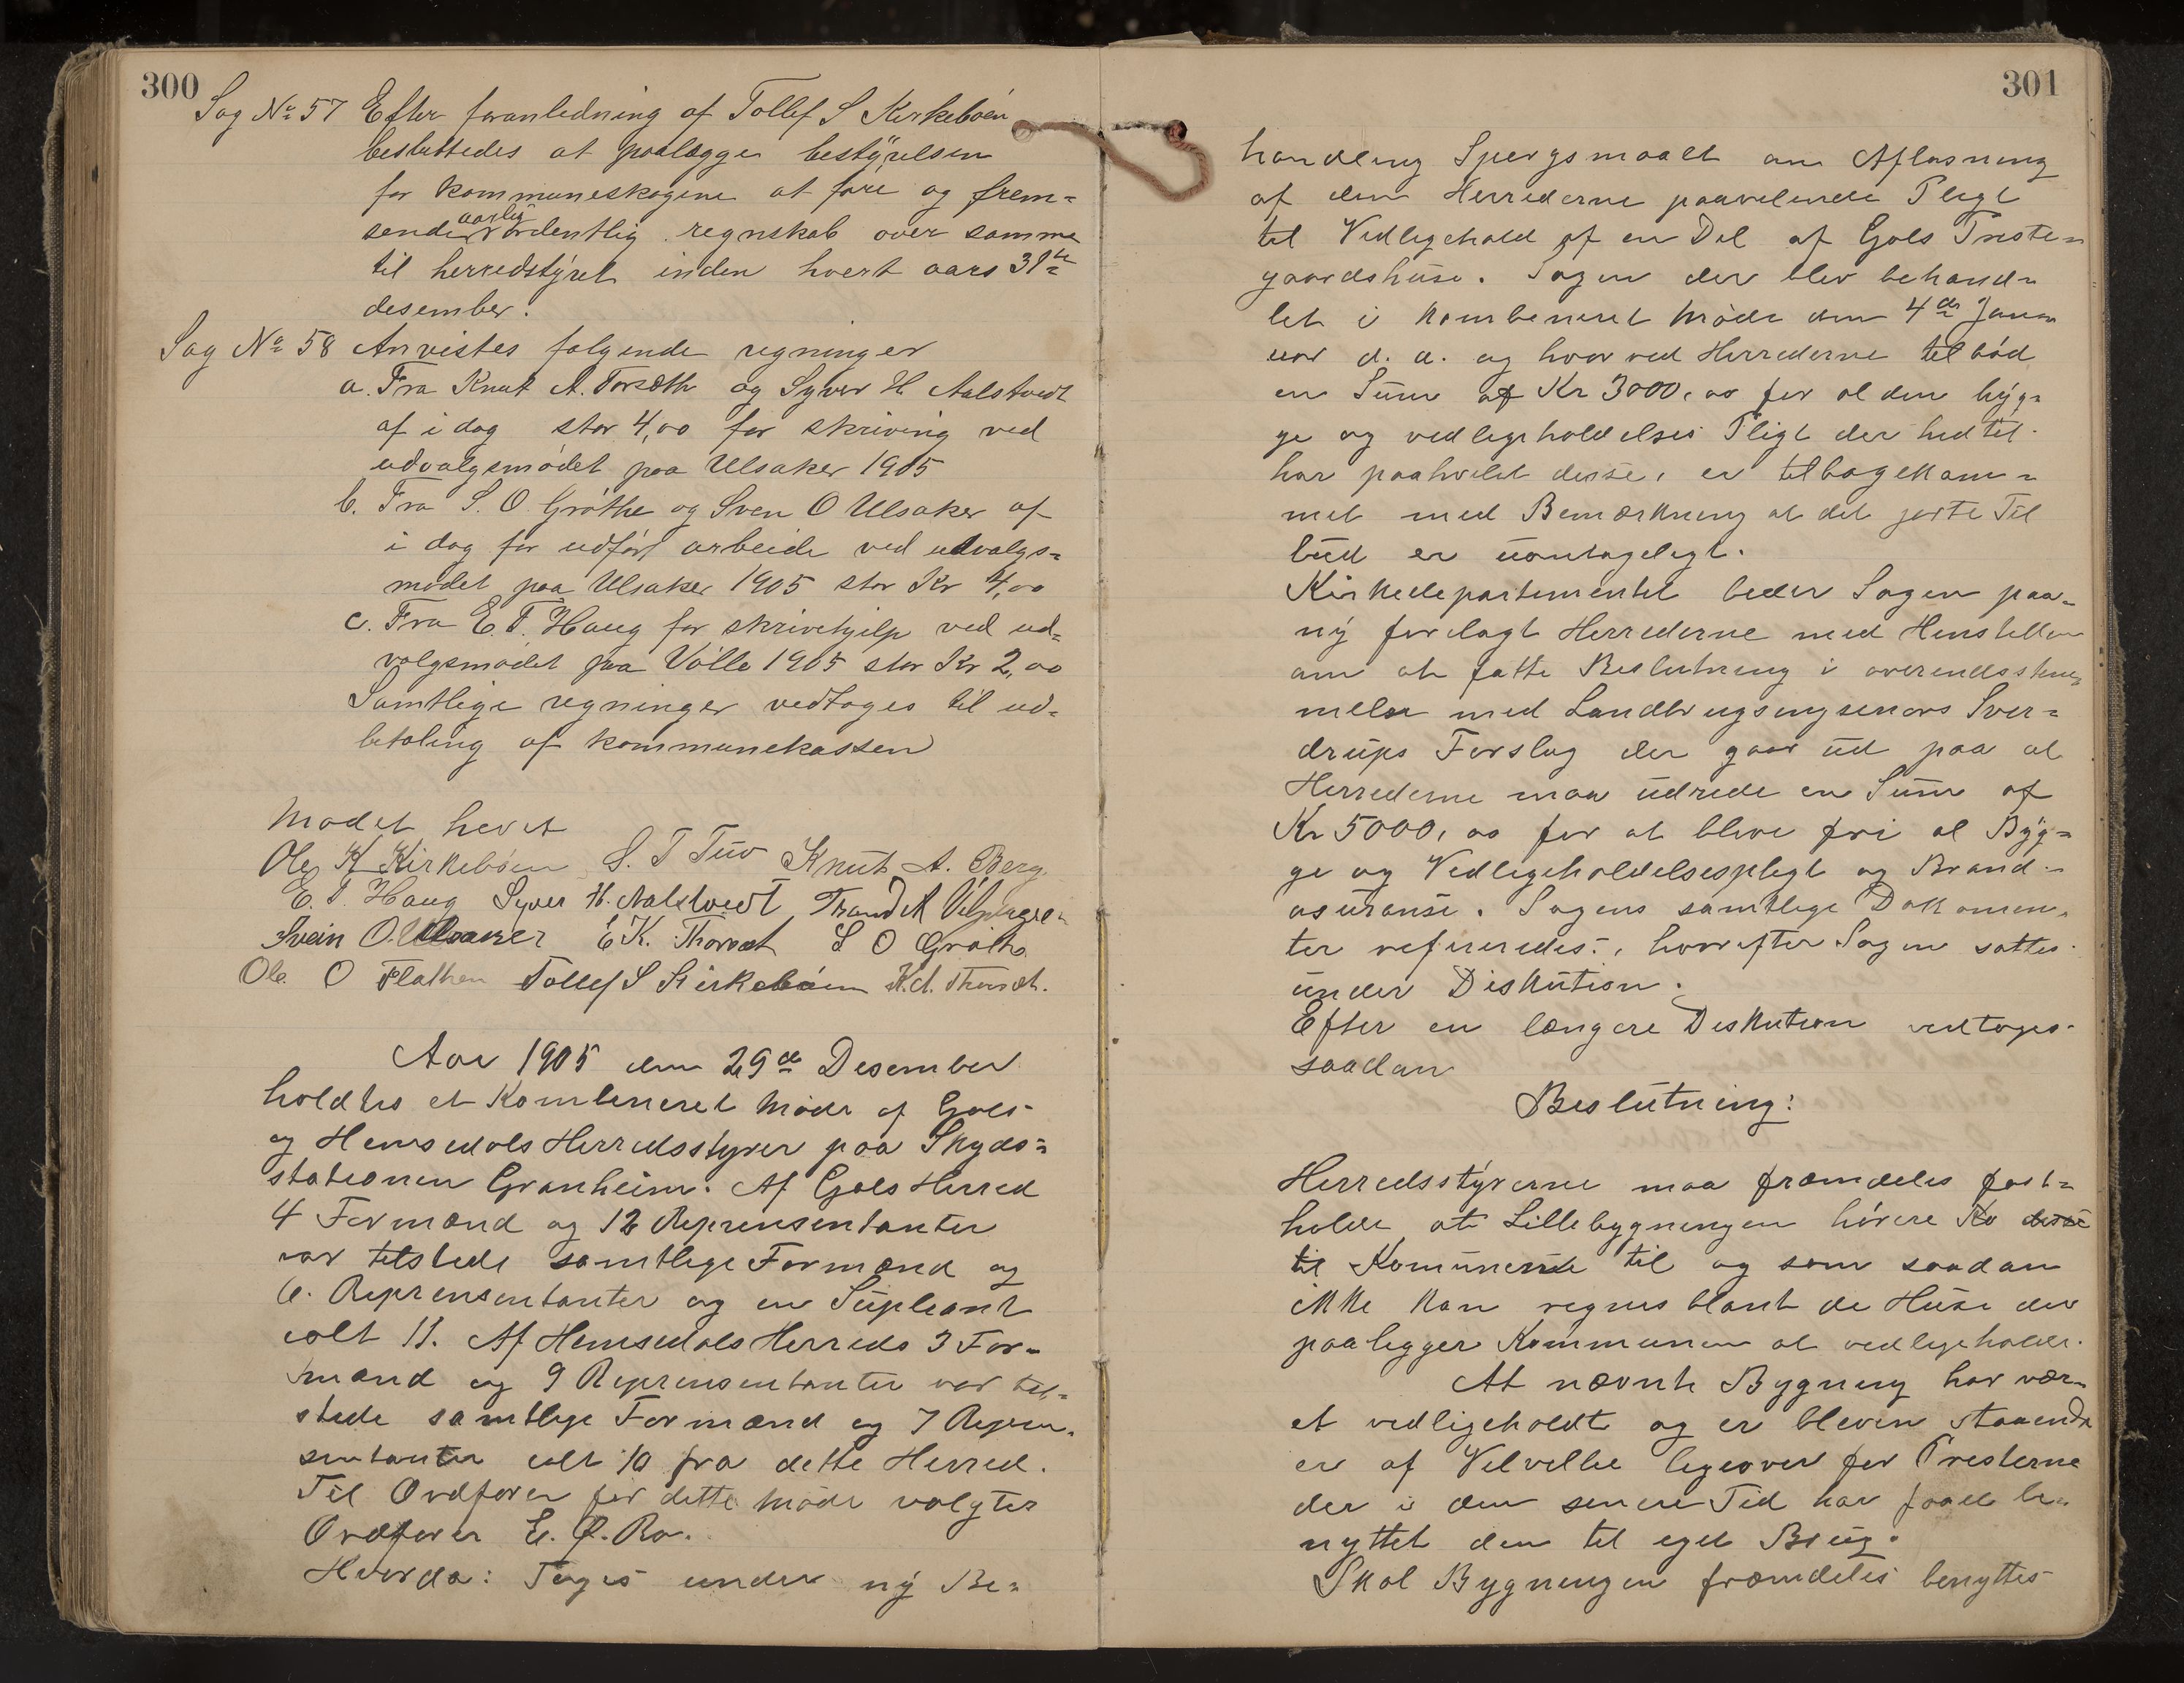 300
Sag No 57 Efter foranledning af Tollef S Kirkebøen
besluttedes at paalægge bestyrelsen
for kommuneskogene at føre og frem=
sende aarlig ordentlig regnskab over samme
til herredstyret inden hvert aars 31te
desember.
Sag No 58 Anvistes følgende regninger
a. Fra Knut A. Torsæth og Syver H. Aalstvedt
af i dag stor 4,00 for skriving ved
udvalgsmødet paa Ulsaker 1905
b. Fra S. O. Grøthe og Sven O Ulsaker af
i dag for udført arbeide ved udvalgs=
mødet paa Ulsaker 1905 stor Kr 4,00
c. Fra E. T. Haug for skrivehjelp ved ud=
valgsmødet paa Volle 1905 stor Kr 2,00
Samtlige regninger vedtoges til ud=
betaling af kommunekassen
Mødet hevet
Ole K Kirkebøen S. T Tuv Knut A. Berg
E. T. Haug Syver H. Aalstvedt Trond A
Svein O. Ulsaker E K. Thorset S O Grøthe
Ole O Flathen Tollef S Kirkebøen K. A.
Aar 1905 den 29de Desember
holdtes et Kombeneret Møde af Gols
og Hemsedals Herredsstyrer paa Skyds=
stationen Granheim. Af Gols Herred
4 Formænd og 12 Reprensentanter
var tilstede samtlige Formænd og
6. Reprensentanter og en Supleant
ialt 11. Af Hemsedals Herreds 3 For=
mænd og 9 Reprensentanter var til=
stede samtlige Formænd og 7 Repren=
sentanter ialt 10 fra dette Herred.
Til Ordfører for dette Møde valgtes
Ordfører E. O. Ro.
Hvorda: Toges under ny Be=
301
handling Spørgsmaalet om Afløsning
af den Herrederne paavelende Pligt
til Vedligehold af en Del af Gols Preste=
gaardshuse. Sagen der blev behand=
let i Kombeneret Møde den 4de Jan=
uar d. a. og hvor ved Herrederne tilbød
en Sum af Kr 3000,00 for al den byg=
ge og vedligeholdelses Pligt der hidtil
har paahvilet disse, er tilbagekom=
met med Bemærkning at det gjorte Til
bud er uantageligt.
Kirkedepartementet beder Sagen paa=
ny forelagt Herrederne med Henstellen
om at fatte Beslutning i overendsstem=
melse med Landbrugsingeniørs Sver=
drups Forslag der gaar ud paa at
Herrederne maa udrede en Sum af
Kr 5000,00 for at blive fri al Byg=
ge og Vedligeholdelsespligt og Brand=
asuranse. Sagens samtlige Dokomen=
ter refereredes, hvorefter Sagen sattes
under Diskution.
Efter en længere Diskution vedtoges
saadan
Beslutning:
Herredsstyrerne maa fræmdeles fast=
holde at Lillebygningen hørere Ko disse
til Komunerne til og som saadan
ikke kan regnes blant de Huse der
paaligger Kommunen at vedligeholde.
At nævnte Bygning har vær=
et vedligeholdt og er bleven staaende
er af Velvillie ligeover for Presterne
der i den senere Tid har faaet be=
nyttet den til eget Brug.
Skal Bygningen fræmdeles benyttes